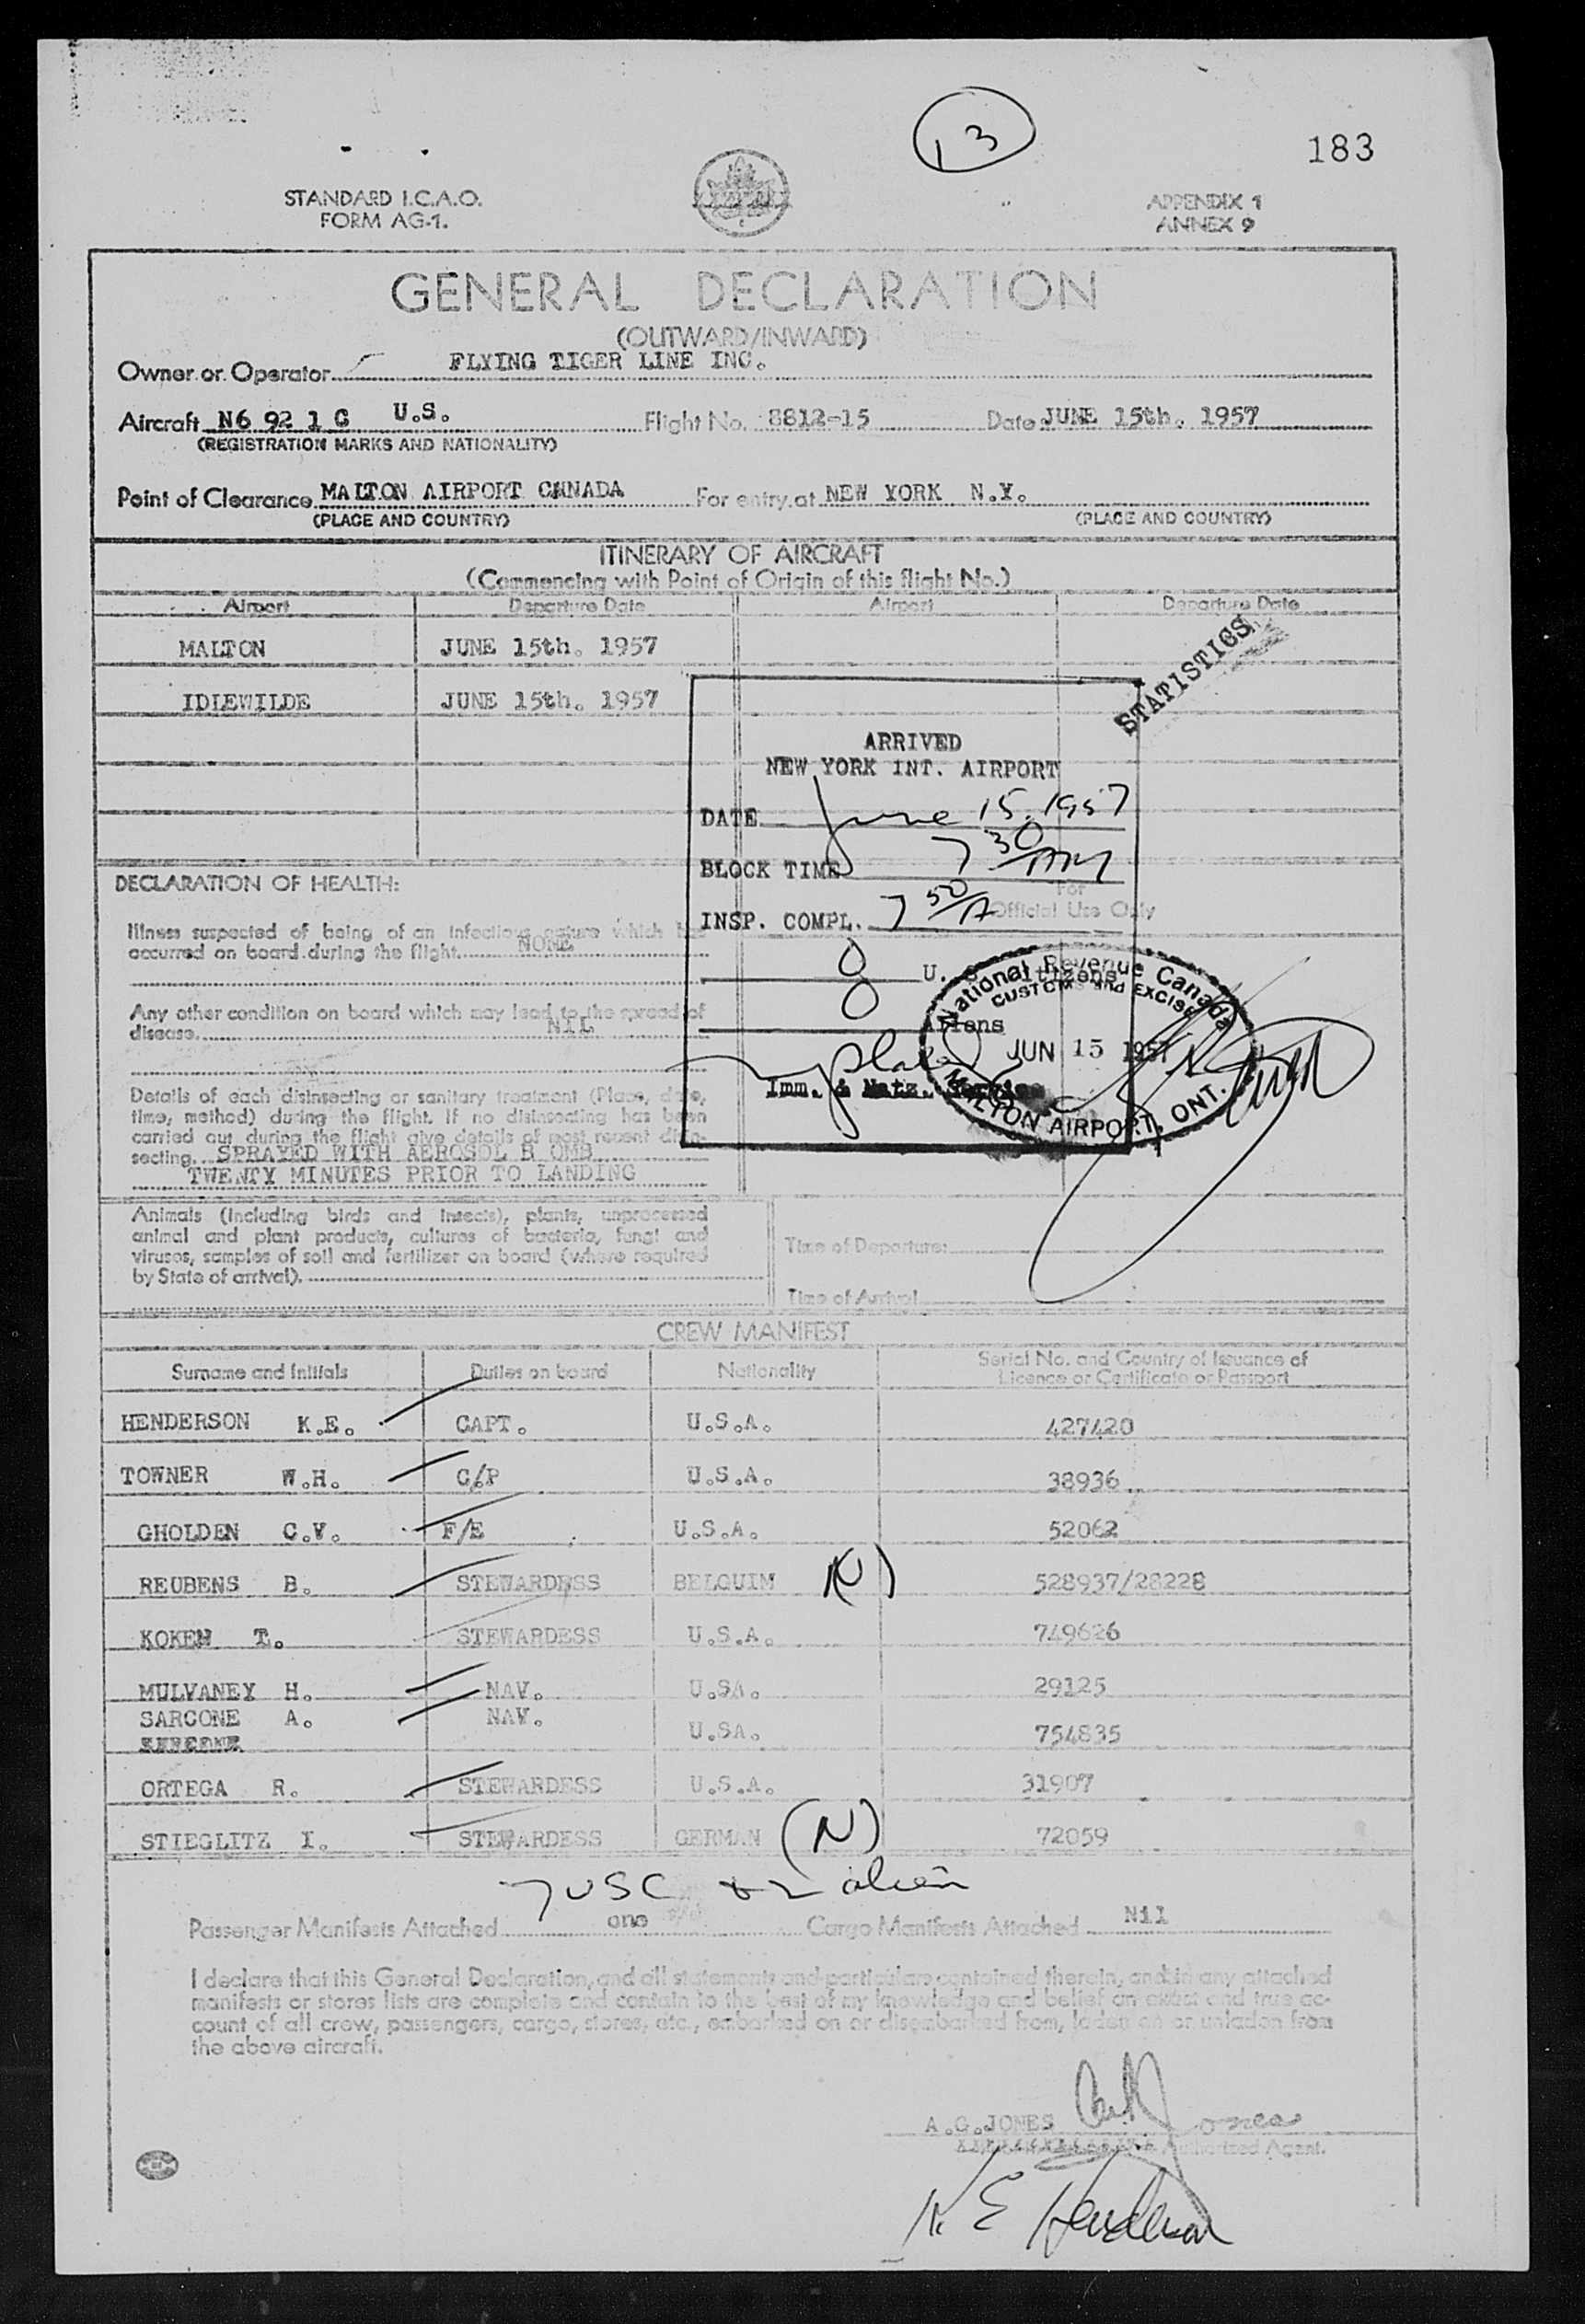 13
183
STANDARD I.C.A.O.
FORM AG-1.
APPENDIX 1
ANNEX 9
GENERAL DECLARATION
(OUTWARD/INWARD)
Owner or Operator FLYING TIGER LINE INC.
Aircraft N6 92 1 C U.S. Flight No. 8812-15 Date JUNE 15th. 1957
(REGISTRATION MARKS AND NATIONALITY)
Point of Clearance MALTON AIRPORT CANADA For entry at NEW YORK N.Y.
(PLACE AND COUNTRY) (PLACE AND COUNTRY)
ITINERARY OF AIRCRAFT
(Commencing with Point of Origin of this flight No.)
Airport Departure Date Airport Departure Date
MALTON JUNE 15th. 1957
IDLEWILDE JUNE 15th. 1957
STATISTICS
ARRIVED
NEW YORK INT. AIRPORT
DATE June 15, 1957
BLOCK TIME 7 30 AM
INSP. COMPL. 7 50 A
U. S. Citizens
Aliens
Imm. & Natz. Service
For
Official Use Only
National Revenue Canada
CUSTOMS and EXCISE
JUN 15 1957
MALTON AIRPORT, ONT.
DECLARATION OF HEALTH:
Illness suspected of being of an infectious nature which has
occurred on board during the flight. NONE
Any other condition on board which may lead to the spread of
disease. NIL
Details of each disinsecting or sanitary treatment (Place, date,
time, method) during the flight. If no disinsecting has been
carried out during the flight give details of most recent disin-
secting. SPRAYED WITH AEROSOL B OMB
TWENTY MINUTES PRIOR TO LANDING
Animals (including birds and insects), plants, unprocessed
animal and plant products, cultures of bacteria, fungi and
viruses, samples of soil and fertilizer on board (where required
by State of arrival).
Time of Departure:
Time of Arrival
CREW MANIFEST
Surname and Initials Duties on board Nationality Serial No. and Country of Issuance of
Licence or Certificate or Passport
HENDERSON K.E. CAPT. U.S.A. 427420
TOWNER W.H. C/P U.S.A. 38936
GHOLDEN C.V. F/E U.S.A. 52062
REUBENS B. STEWARDESS BELQUIM (N) 528937/28228
KOKEN T. STEWARDESS U.S.A. 749626
MULVANEY H. NAV. U.SA. 29125
SARCONE A. NAV. U.SA. 754835
ORTEGA R. STEWARDESS U.S.A. 31907
STIEGLITZ I. STEWARDESS GERMAN (N) 72059
7 USC & 2 alien
Passenger Manifests Attached one Cargo Manifests Attached Nil
I declare that this General Declaration, and all statements and particulars contained therein, and in any attached
manifests or stores lists are complete and contain to the best of my knowledge and belief an exact and true ac-
count of all crew, passengers, cargo, stores, etc., embarked on or disembarked from, laden on or unladen from
the above aircraft.
A.G.JONES Jones
Authorized Agent.
K E Henderson